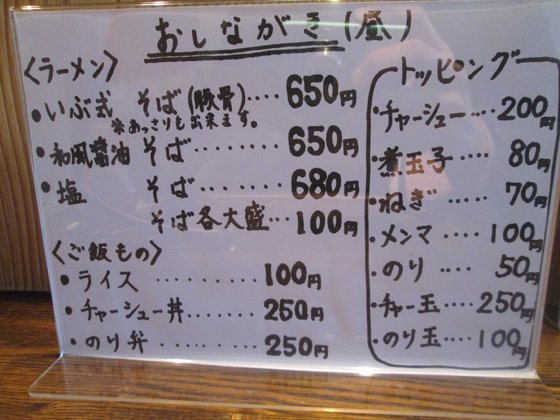 おしながき(昼)
〈ラーメン〉
・いぶ式 そば(豚骨)‥‥650円
※あっさりも出来ます。
・和風醤油 そば‥‥‥‥650円
・塩 そば‥‥‥‥680円
そば各大盛‥‥100円
〈ご飯もの〉
・ライス‥‥‥‥‥100円
・チャーシュー丼‥‥‥250円
・のり弁‥‥‥‥‥250円
トッピング
・チャーシュー‥‥200円
・煮玉子‥‥80円
・ねぎ‥‥70円
・メンマ‥‥100円
・のり‥‥50円
・チャー玉‥‥250円
・のり玉‥‥100円